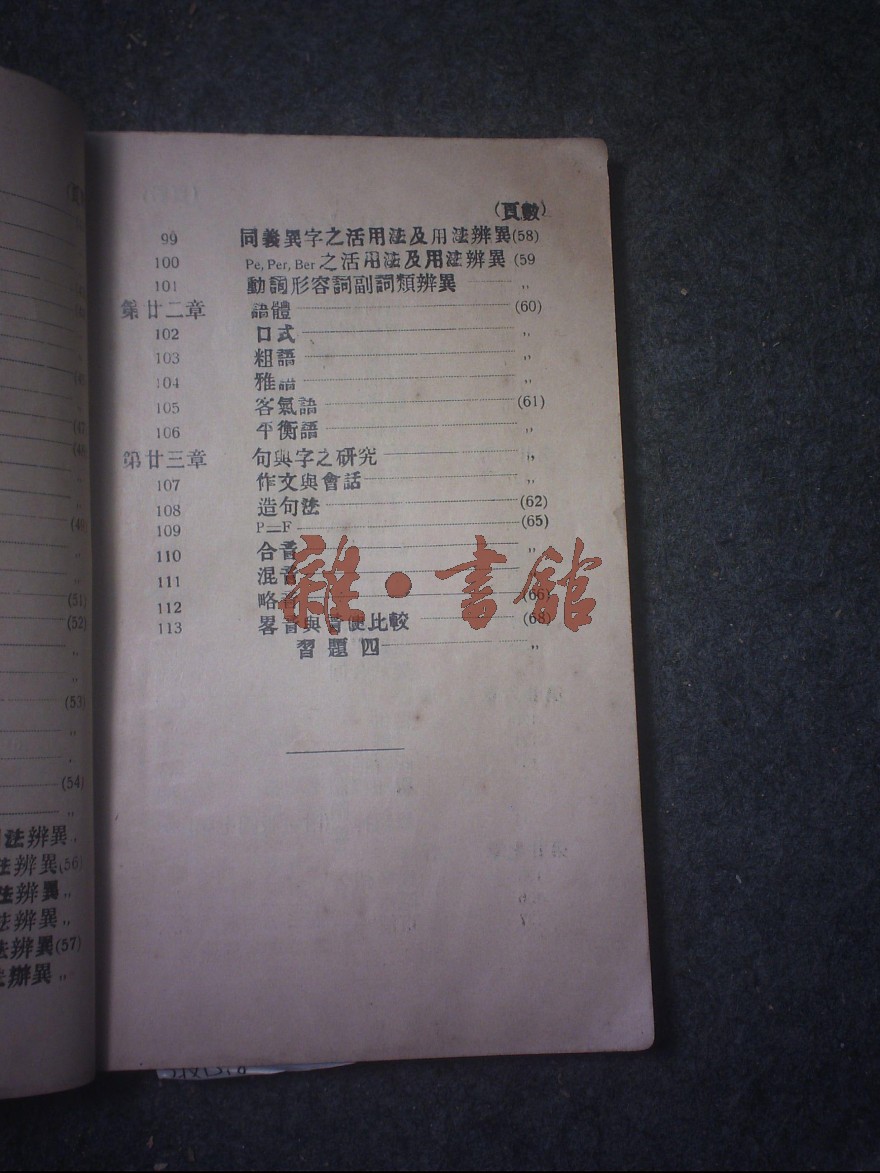 (頁數)
99 同義異字之活用法及用法辨異(58)
100 Pe, Per, Ber 之活用法及用法辨異 (59
101 動詞形容詞副詞類辨異 ,,
第廿二章 語體 (60)
102 口式 ,,
103 粗語 ,,
104 雅語 ,,
105 客氣語 (61)
106 平衡語 ,,
第廿三章 句與字之研究 ,,
107 作文與會話 ,,
108 造句法 (62)
109 P=F (65)
110 合音 ,,
111 混音
112 略音 (66)
113 畧音與音便比較 (68)
習題四 ,,
雜·書館
(47
(48
(51)
(52)
,,
(53)
,,
(54)
,,
法辨異 ,,
法辨異(56)
法辨異 ,,
法辨異 ,,
法辨異(57)
法辦異 ,,